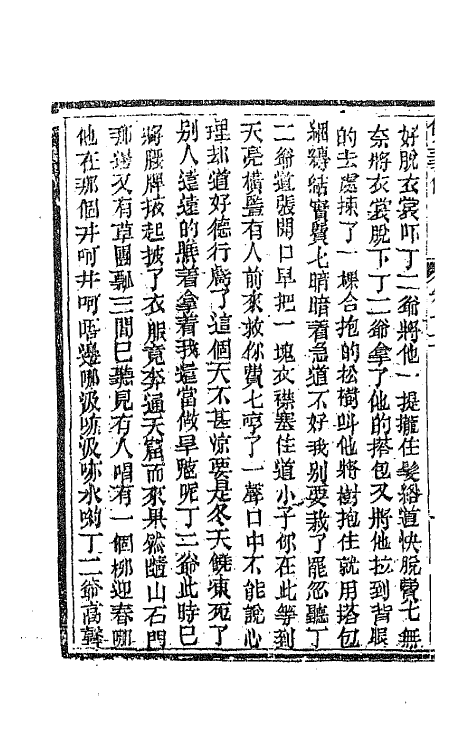 好脫衣裳吓丁二爺將他一提攏住髮綹道快脫費七無
奈將衣裳脫下丁二爺拿了他的搭包又將他拉到背眼
的去處揀了一棵合抱的松樹叫他將樹抱住就用搭包
綑縛結實費七暗暗着急道不好我別要栽了罷忽聽丁
二爺道張開口早把一塊衣襟塞住道小子你在此等到
天亮橫豎有人前來救你費七哼了一聲口中不能說心
理却道好德行虧了這個天不甚凉要是冬天饒凍死了
別人遠遠的瞧着拿着我還當做旱魃呢丁二爺此時已
將腰牌掖起披了衣服竟奔通天窟而來果然隨山石門
那邊又有草團瓢三間已聽見有人唱有一個柳迎春哪
他在那個井呵井呵唔邊哪汲哧汲哧水喲丁二爺高聲